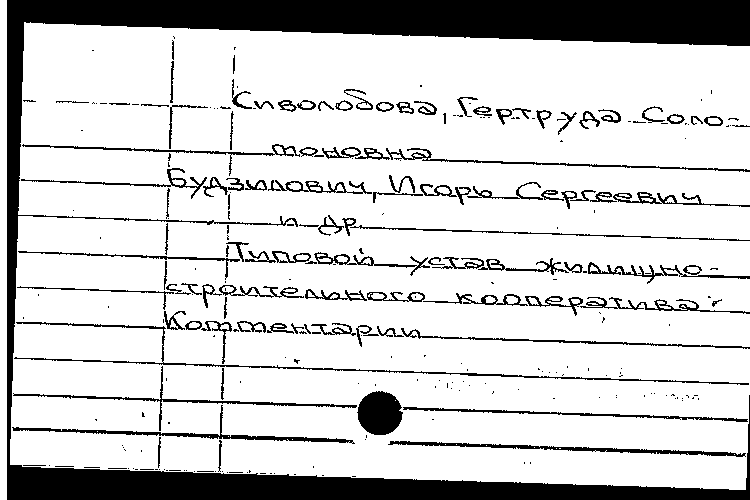 Сиволобова, Гертруда Соло-
моновна
Будзилович, Игорь Сергеевич
и др.
Типовой устав жилищно-
строительного кооператива:
Комментарии